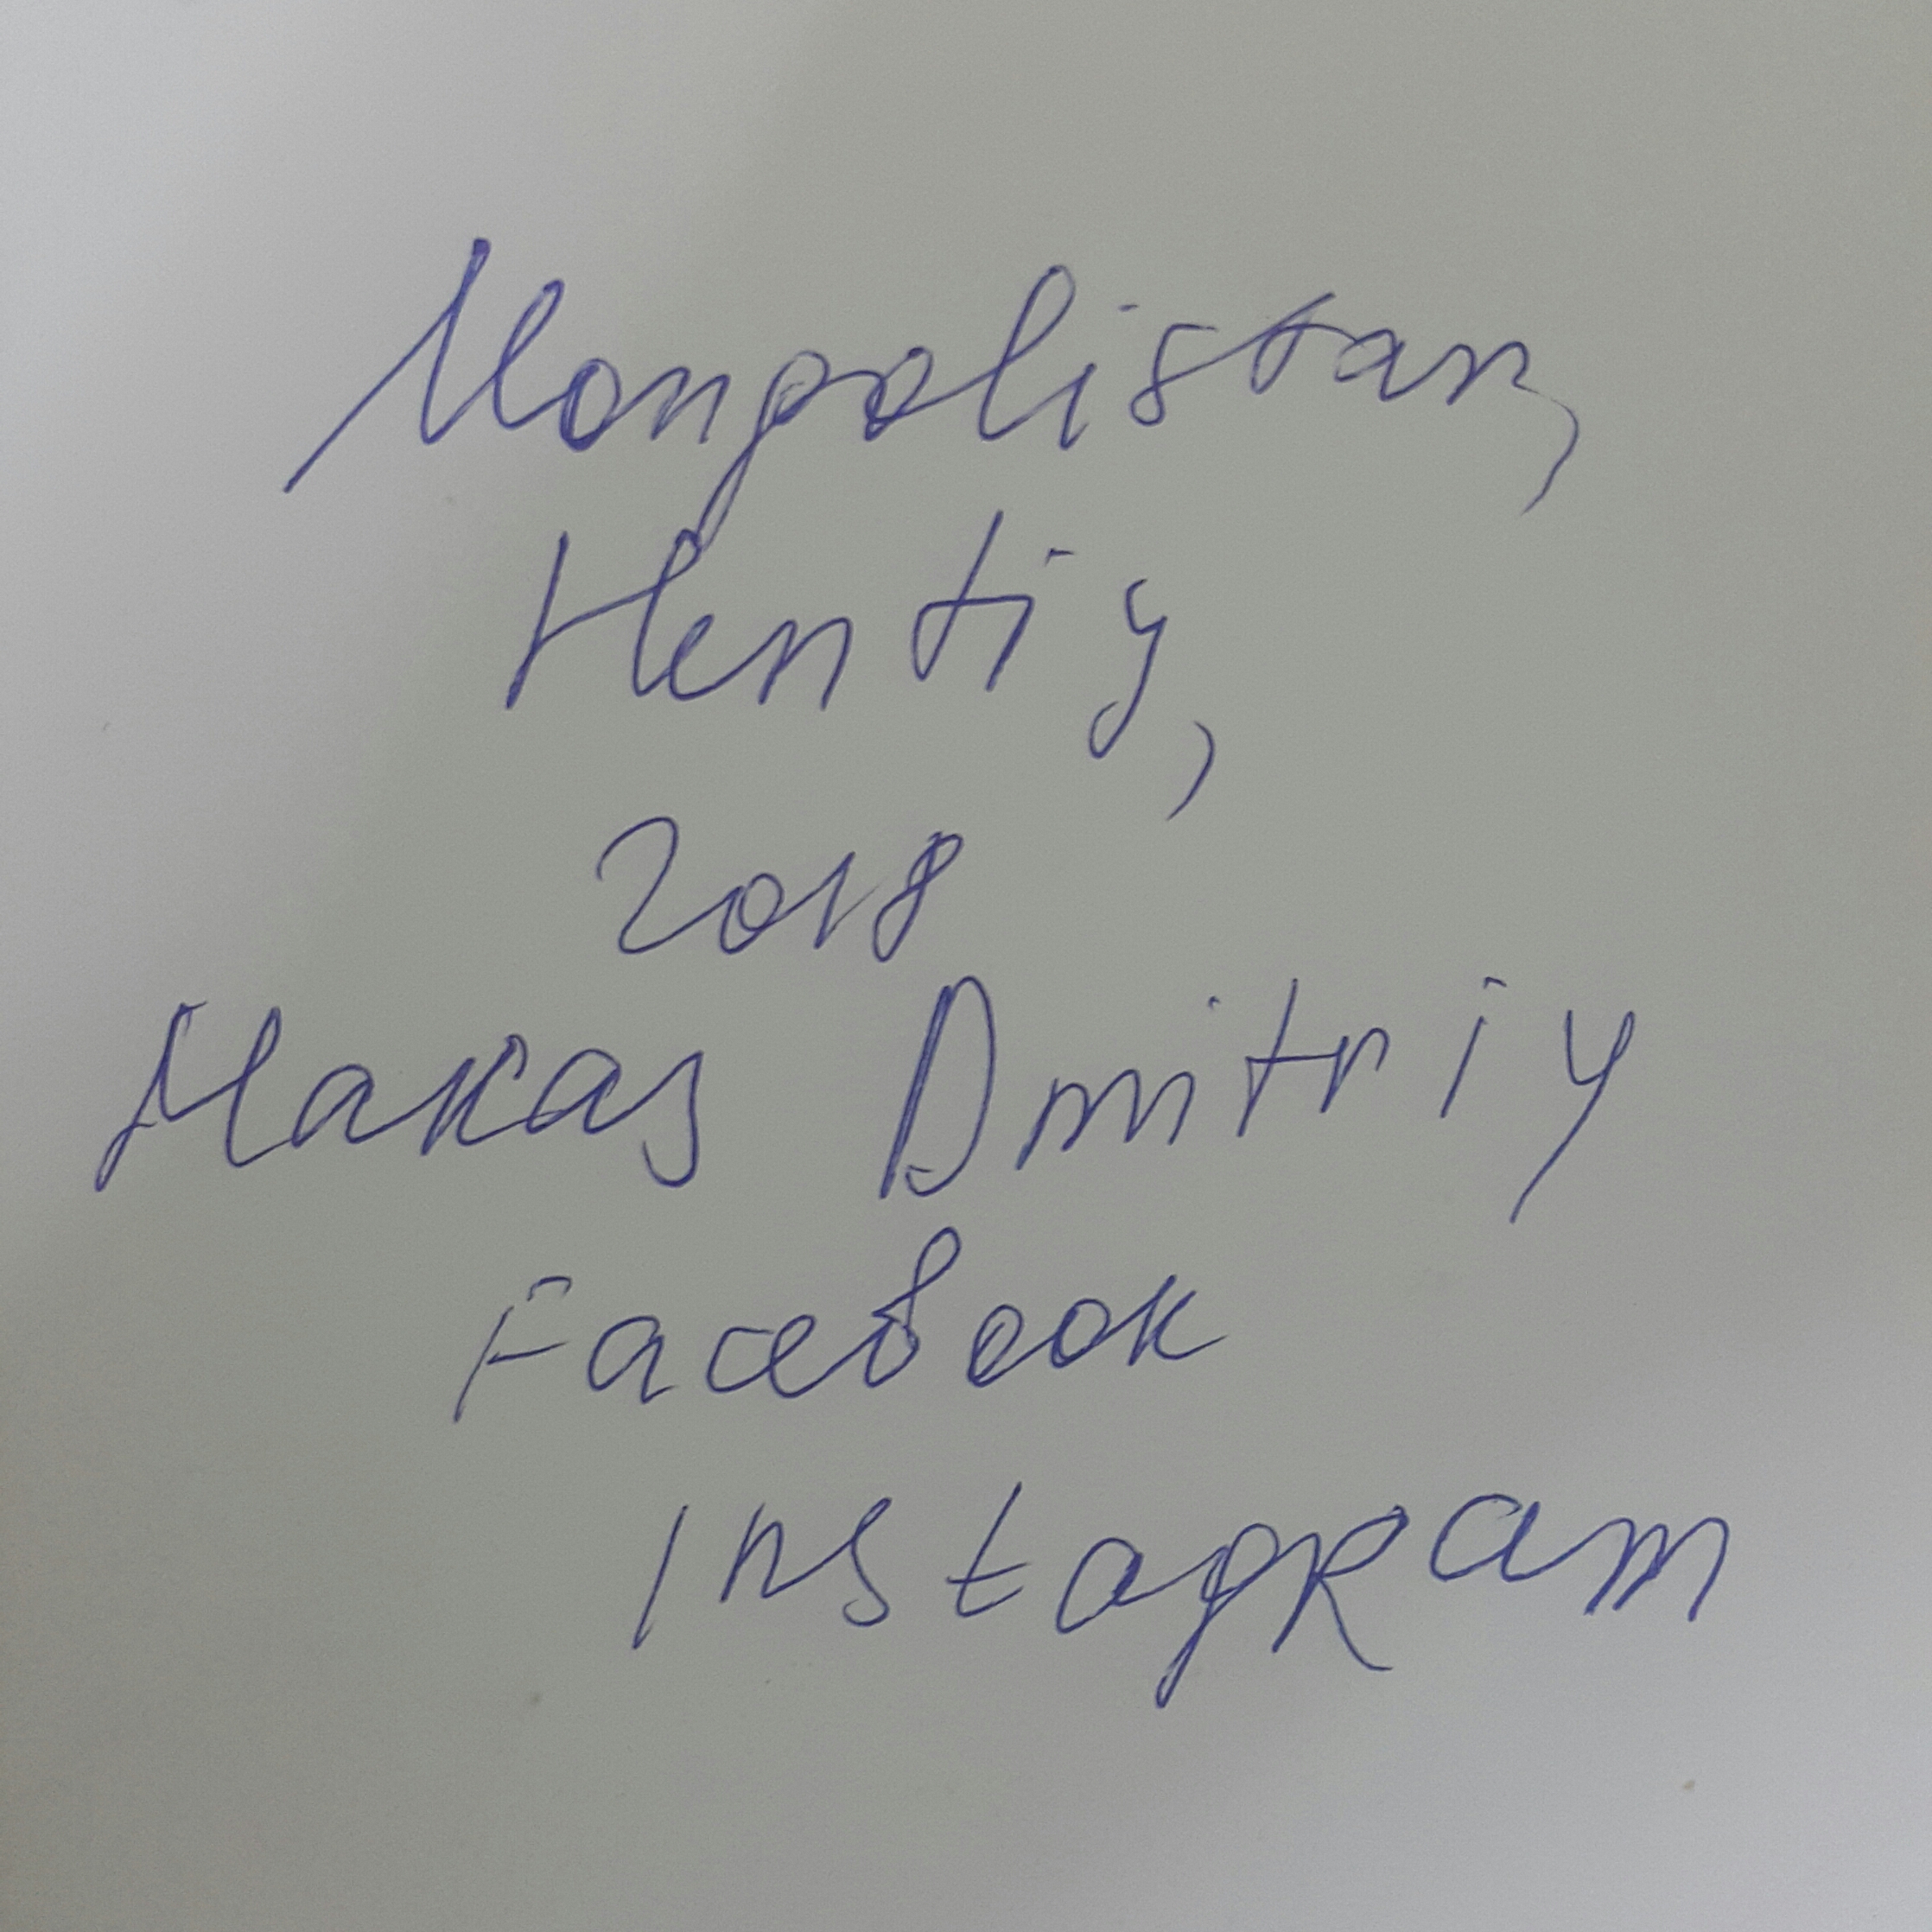 Mongolistan,
Hentiy,
2018
Makas Dmitriy
Facebook
Instagram